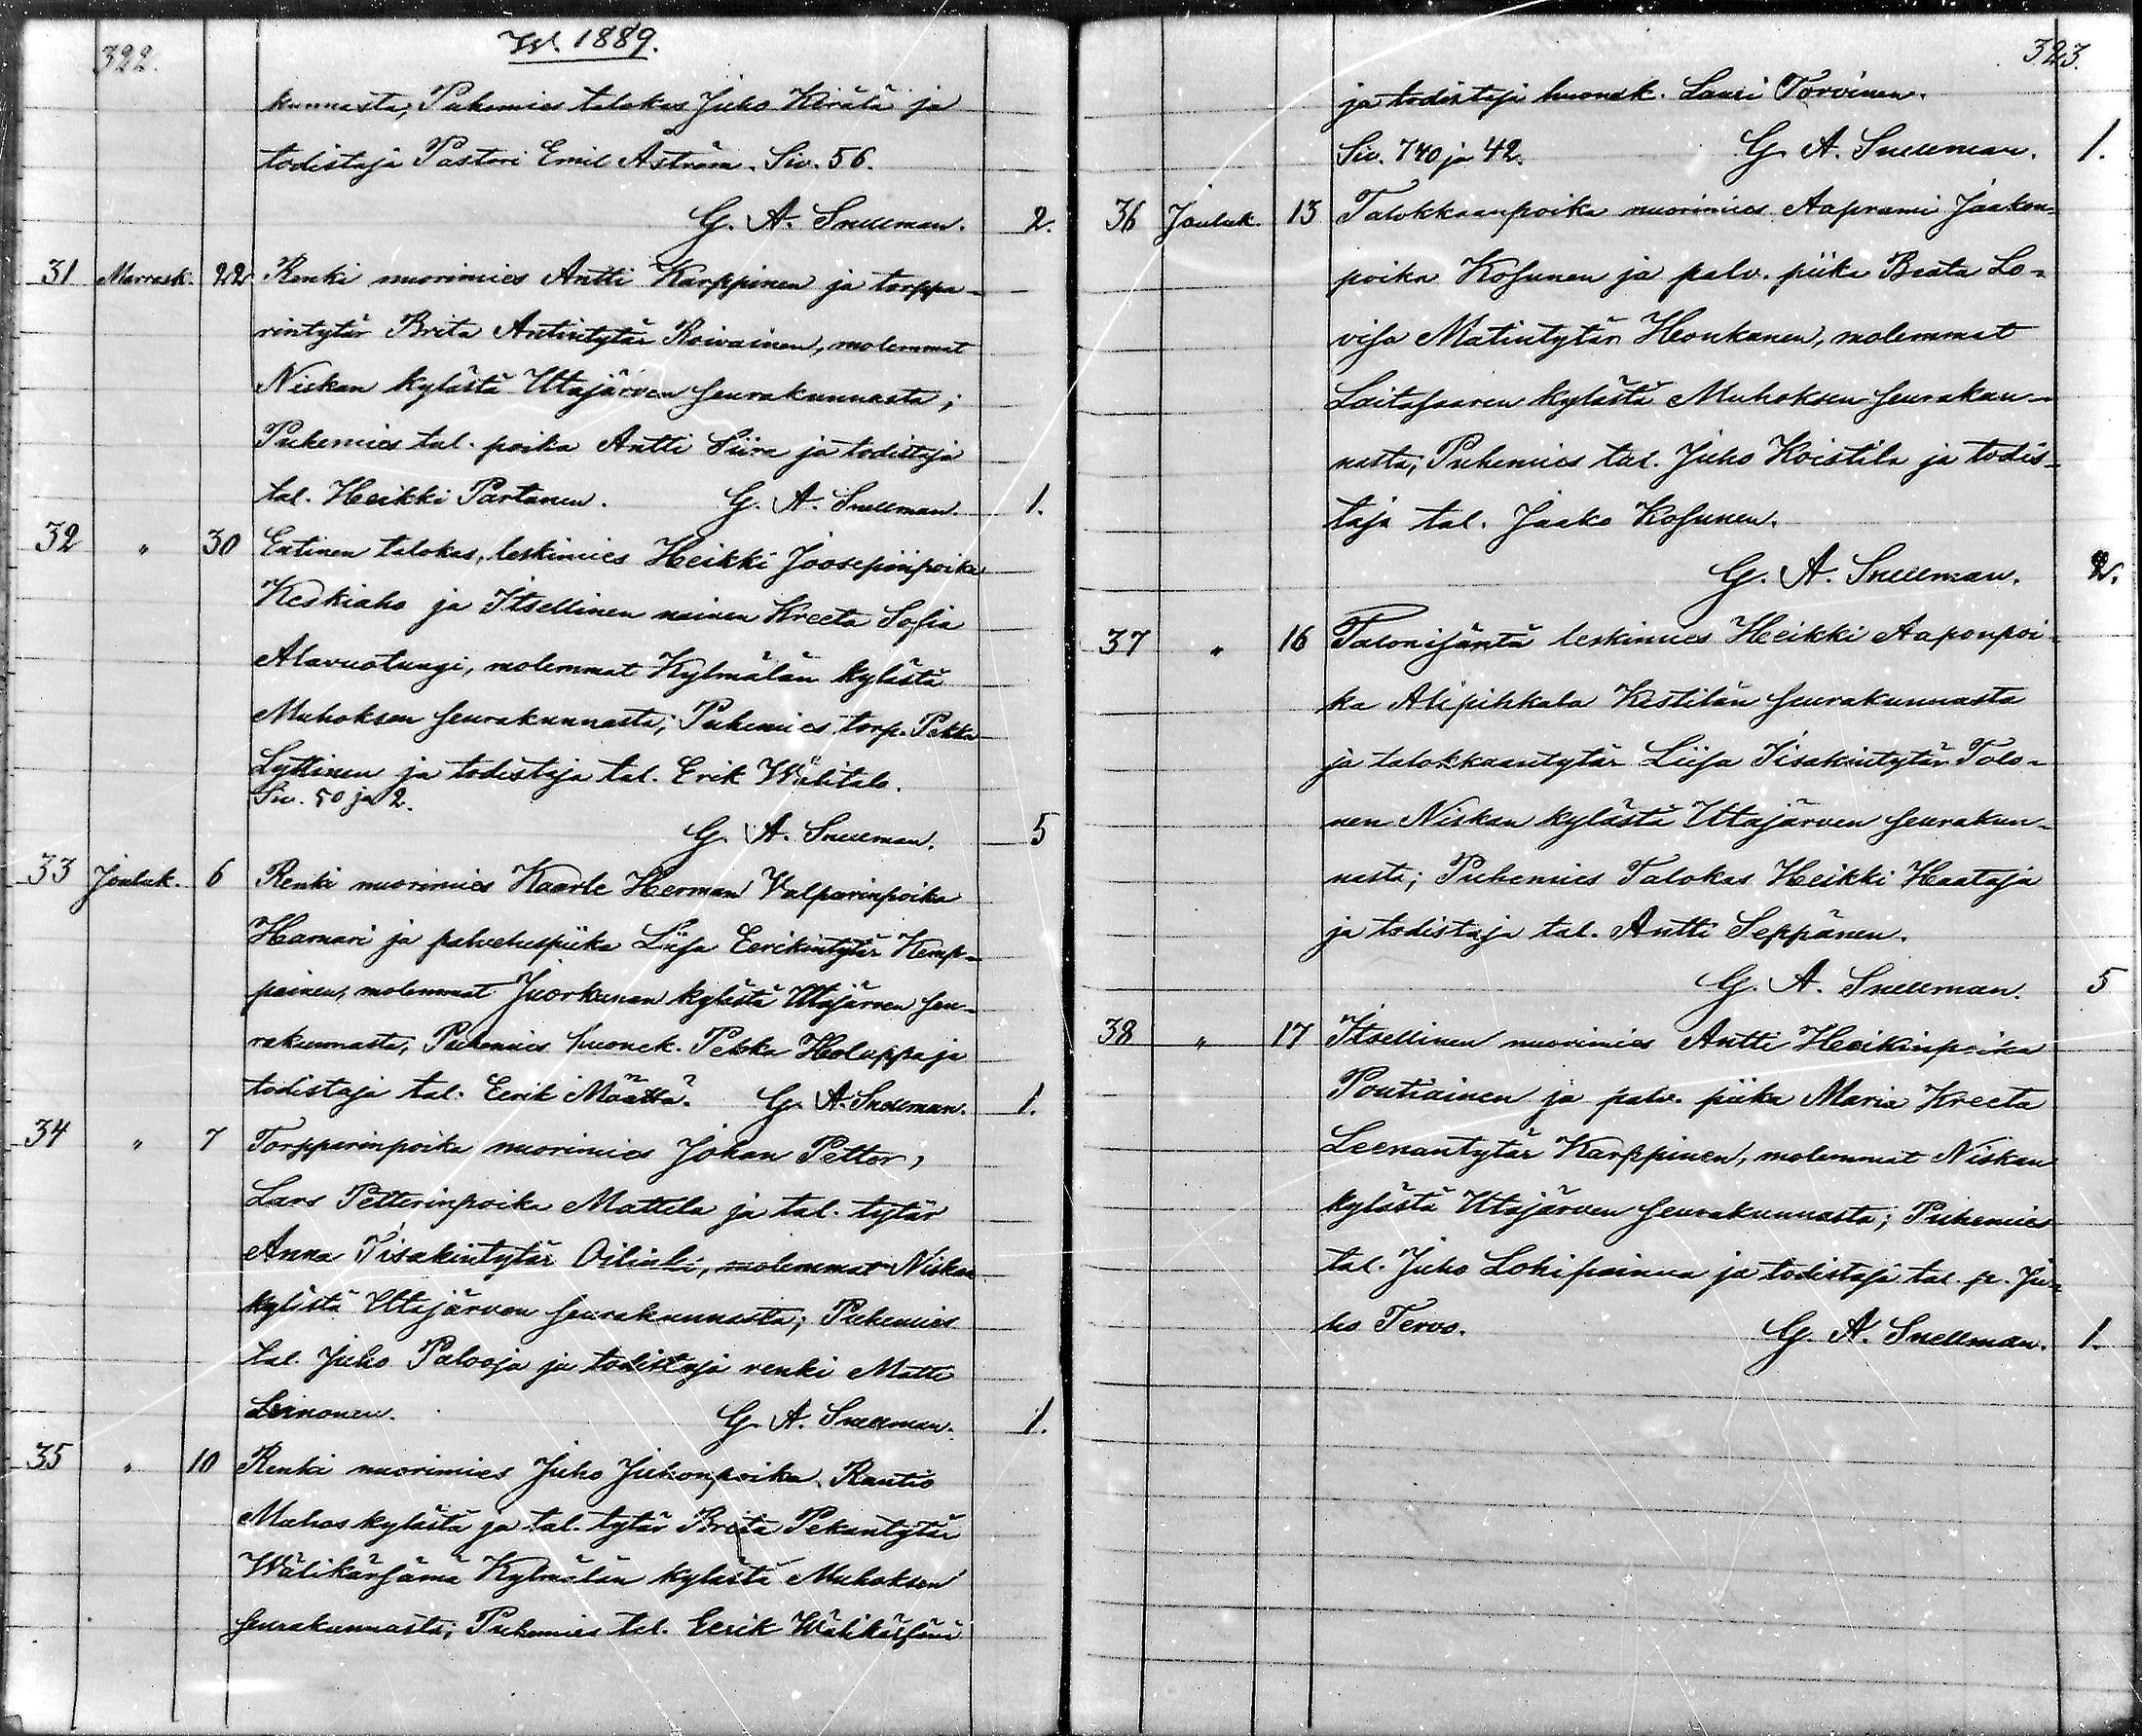 322.
W. 1889.
kunnasta; Puhemies talokas Juho Kerälä ja
todistaja Pastori Emil Åström. Siv. 56.
G. A. Snellman. 2.
31 Marrask. 22 Renki nuorimies Antti Karppinen ja torppa-
rintytär Brita Antintytär Roivainen, molemmat
Niskan kylästä Utajärven seurakunnasta;
Puhemies tal. poika Antti Siira ja todistaja
tal. Heikki Partanen. G. A. Snellman. 1.
32 " 30 Entinen talokas, leskimies Heikki Joosepinpoika
Keskiaho ja Itsellinen nainen Kreeta Sofia
Alavuotungi, molemmat Kylmälän kylästä
Muhoksen seurakunnasta; Puhemies torp. Pekka
Lyttinen ja todistaja tal. Erik Wälitalo.
Siv. 50 ja 2.
G. A. Snellman. 5
33 Jouluk. 6 Renki nuorimies Kaarle Herman Valparinpoika
Hamari ja palveluspiika Liisa Eerikintytär Kemp-
painen, molemmat Juorkunan kylästä Utajärven seu-
rakunnasta, Puhemies huonek. Pekka Holappa ja
todistaja tal. Eerik Määttä. G. A. Snellman. 1.
34 " 7 Torpparinpoika nuorimies Johan Petter,
Lars Petterinpoika Mattila ja tal. tytär
Anna Iisakintytär Oilinki, molemmat Niskan
kylästä Utajärven seurakunnasta; Puhemies
tal. Juho Palooja ja todistaja renki Matti
Leinonen. G. A. Snellman. 1.
35 " 10 Renki nuorimies Juho Juhonpoika Rautio
Muhos kylästä ja tal. tytär Brita Pekantytär
Wälikärsämä Kylmälän kylästä Muhoksen
seurakunnasta; Puhemies tal. Eerik Wälikärsämä
323.
ja todistaja huonek. Lauri Torvinen.
Siv. 740 ja 42. G. A. Snellman. 1.
36 Jouluk. 13 Talokkaanpoika nuorimies Aaprami Jaakon-
poika Kosunen ja palv. piika Beata Lo-
visa Matintytär Honkanen, molemmat
Laitasaaren kylästä Muhoksen seurakun-
nasta; Puhemies tal. Juho Koistila ja todis-
taja tal. Jaako Kosunen.
G. A. Snellman. 2.
37 " 16 Talonisäntä leskimies Heikki Aaponpoi-
ka Alipihkala Kestilän seurakunnasta
ja talokkaantytär Liisa Iisakintytär Tolo-
nen Niskan kylästä Utajärven seurakun-
nasta; Puhemies Talokas Heikki Haataja
ja todistaja tal. Antti Seppänen.
G. A. Snellman. 5
38 " 17 Itsellinen nuorimies Antti Heikinpoika
Poutiainen ja palv. piika Maria Kreeta
Leenantytär Karppinen, molemmat Niskan
kylästä Utajärven seurakunnasta; Puhemies
tal. Juho Lohipainua ja todistaja tal. p. Ju-
ho Tervo. G. A. Snellman. 1.